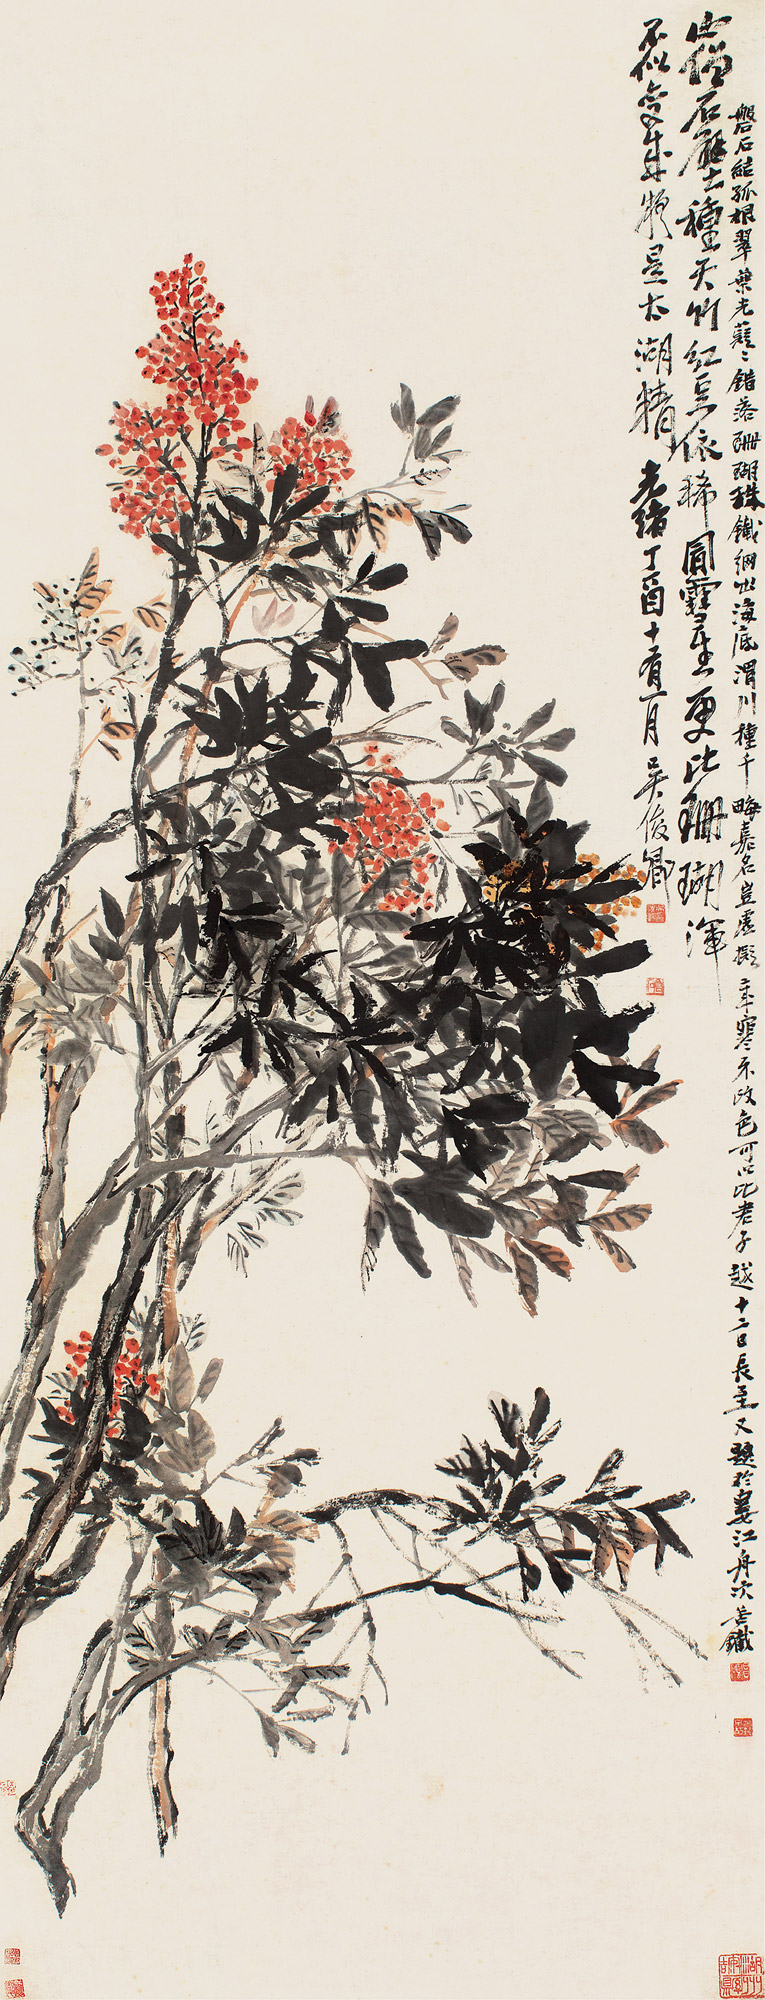 磐石結孤根翠葉光薿〻錯落珊瑚珠鐵網出海底渭川種千畮嘉名豈虛擬歲寒不改色可以比君子越十二日長至又題於婁江舟次苦鐵
石種天竹紅豆依稀圓靈星更比珊瑚渾
不似變成疑是太湖精光緒丁酉十有一月吳俊卿
湖州安吉縣